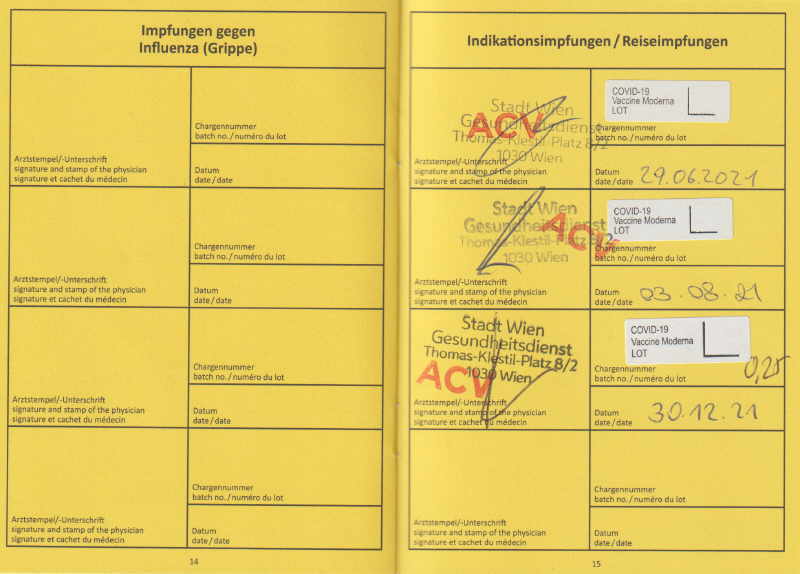 Impfungen gegen
Influenza (Grippe)
Chargennummer
batch no./numéro du lot
Arztstempel/-Unterschrift
signature and stamp of the physician
signature et cachet du médecin
Datum
date/date
Chargennummer
batch no./numéro du lot
Arztstempel/-Unterschrift
signature and stamp of the physician
signature et cachet du médecin
Datum
date/date
Chargennummer
batch no./numéro du lot
Arztstempel/-Unterschrift
signature and stamp of the physician
signature et cachet du médecin
Datum
date/date
Chargennummer
batch no./numéro du lot
Arztstempel/-Unterschrift
signature and stamp of the physician
signature et cachet du médecin
Datum
date/date
14
Indikationsimpfungen / Reiseimpfungen
Stadt Wien
Gesundheitsdienst
Thomas-Klestil-Platz 8/2
1030 Wien
ACV
COVID-19
Vaccine Moderna
LOT
Chargennummer
batch no./numéro du lot
Arztstempel/-Unterschrift
signature and stamp of the physician
signature et cachet du médecin
Datum
date/date 29.06.2021
Stadt Wien
Gesundheitsdienst
Thomas-Klestil-Platz 8/2
1030 Wien
ACV
COVID-19
Vaccine Moderna
LOT
Chargennummer
batch no./numéro du lot
Arztstempel/-Unterschrift
signature and stamp of the physician
signature et cachet du médecin
Datum
date/date 03.08.21
Stadt Wien
Gesundheitsdienst
Thomas-Klestil-Platz 8/2
1030 Wien
ACV
COVID-19
Vaccine Moderna
LOT
0,25
Chargennummer
batch no./numéro du lot
Arztstempel/-Unterschrift
signature and stamp of the physician
signature et cachet du médecin
Datum
date/date 30.12.21
Chargennummer
batch no./numéro du lot
Arztstempel/-Unterschrift
signature and stamp of the physician
signature et cachet du médecin
Datum
date/date
15